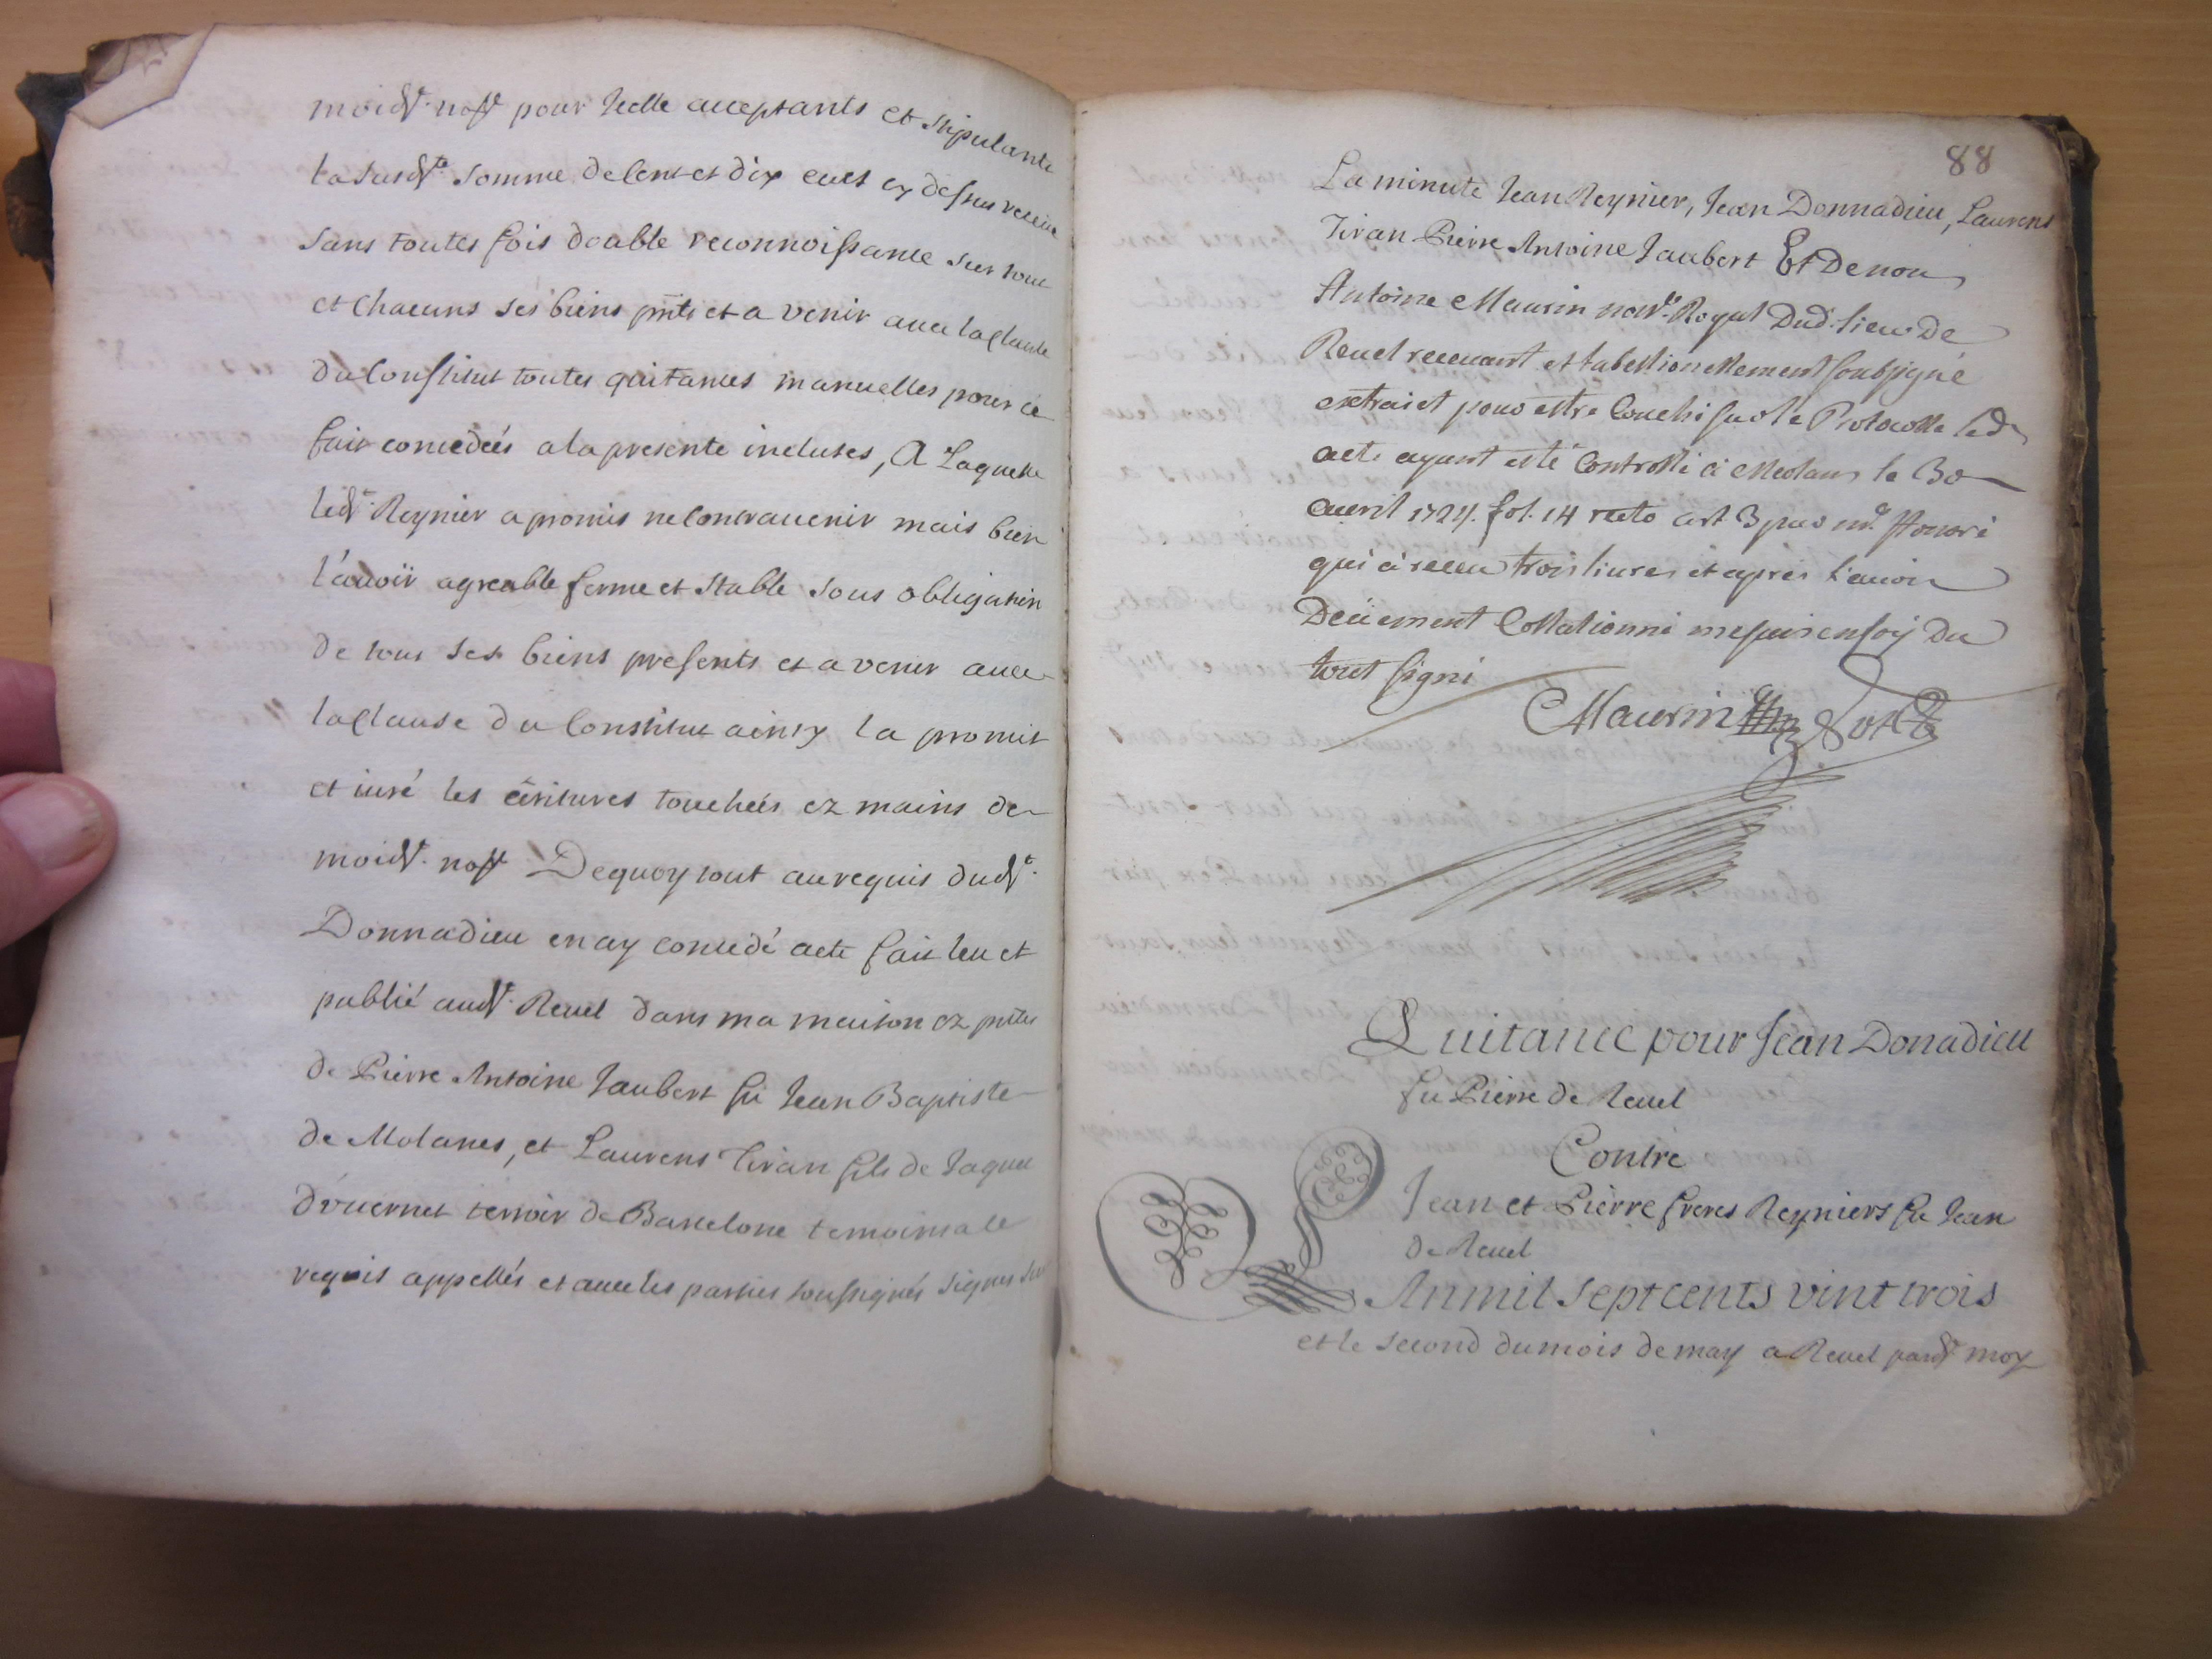 moidt. nore pour Icelle acceptants et stipulants
la susdte somme de Cent et dix eucs cy dessus receüe
sans toutes fois double reconnoissance sur tous
et Chacuns ses biens pnts et a venir auec la Clause
du Constitut toutes quitances manuelles pour ce
fair concedées a la presente incluses, A Laquelle
ledt. Reynier a promis ne Contrauenir mais bien
l'auoir agreable ferme et stable sous obligation
de tous ses biens presents et a venir auec
la Clause du Constitut ainsy la promit
et iuré les écritures touchées ez mains de
moidt. nore Dequoy tout au requis dudt.
Donnadieu en ay concedé acte fait leu et
publié audt. Reuel dans ma maison ez pntes
de Pierre Antoine Jaubert fû Jean Baptiste
de Molanes, et Laurens Tiran fils de Jaques
d'vuernet terroir de Barcelone temoins a ce
requis appellés et auec les parties soussignés signés sur
88
La minute Jean Reynier, Jean Donnadieu, Laurens
Tiran Pierre Antoine Jaubert Et De nou
Antoine Maurin nore. Royal Dud. lieu De
Reuel receuant et tabellionellement soubsigné
extraict pour estre Couché sur le Protocolle led
acte ayant esté Controllé à Meolans le 30
auril 1724. fol. 14 recto art 3 par me. Honoré
qui à receu trois liures et apres l'auoir
Deüement Collationné me suis en foy Du
tout signé
Maurin nore
Quitance pour Jean Donadieu
fu Pierre de Reuel
Contre
Jean et Pierre freres Reyniers fu Jean
de Reuel
L An mil sept cents vint trois
et le second du mois de may a Reuel pardt moy